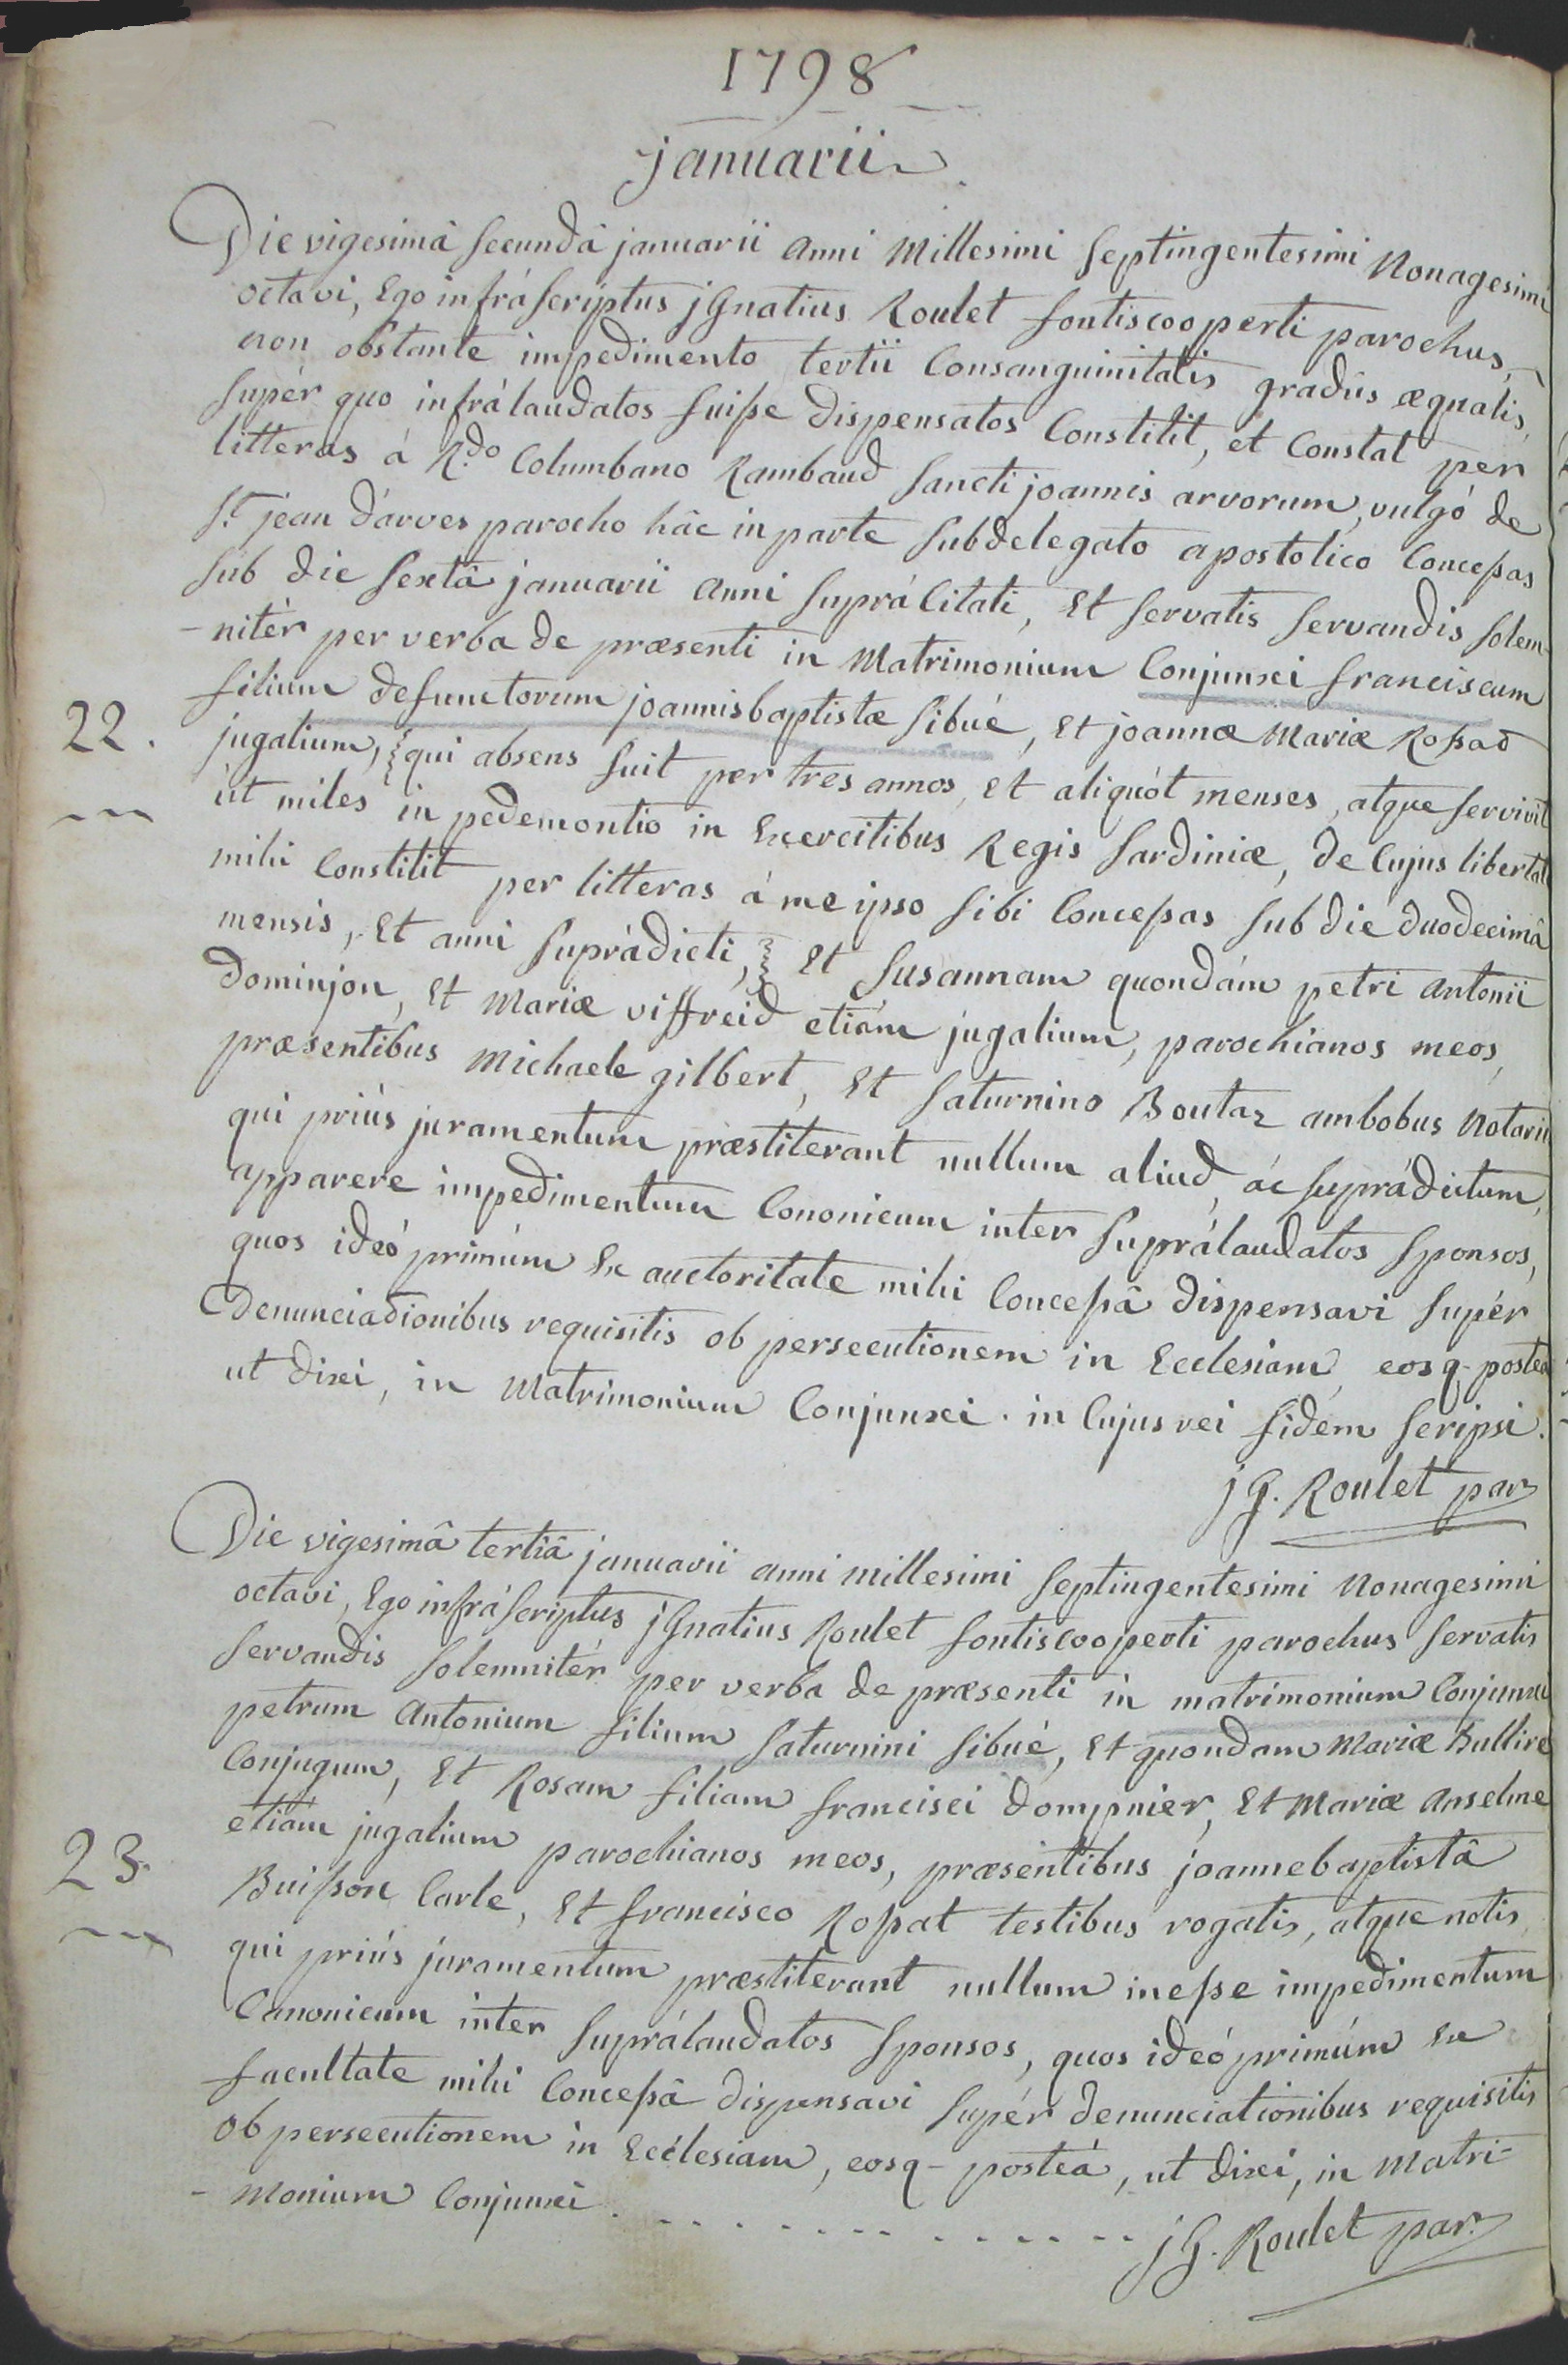 1798
januarii
Die vigesimâ secundâ januarii anni Millesimi Septingentesimi Nonagesimi
octavi, Ego infráscriptus jGnatius Roulet fontiscooperti parochus,
non obstante impedimento tertii Consanguinitatis gradûs æqualis,
supér quo infrálaudatos fuisse dispensatos Constitit, et Constat per
litteras á R.do Columbano Rambaud Sancti joannis arvorum, vulgó de
St jean d'arves parocho hâc in parte Subdelegato apostolico Concessas
sub die Sextâ januarii anni Suprácitati, Et Servatis Servandis Solem-
-nitér per verba de præsenti in Matrimonium Conjunxi franciscum
filium defunctorum joannisbaptistæ Sibué, Et joannæ Mariæ Rossad
22. jugalium, qui absens fuit per tres annos, et aliquót menses, atque servivit
út miles in pedemontio in Exercitibus Regis Sardiniæ, de Cujus libertate
mihi Constitit per litteras á me ipso Sibi Concessas Sub die duodecimâ
mensis, Et anni Suprádicti, Et Susannam quondám petri antonii
dominjon, Et Mariæ viffreid etiám jugalium, parochianos meos,
præsentibus Michaele gilbert, Et Saturnino Boutaz ambobus Notariis
qui priús juramentum præstiterant nullum aliud, ác Suprádictum,
apparere impedimentum Cononicum inter Suprálaudatos Sponsos,
quos ideó primúm Ex auctoritate mihi Concessâ dispensavi Supér
denunciadionibus requisitis ob persecutionem in Ecclesiam, eosq- posteá
ut dixi, in Matrimonium Conjunxi. in Cujus rei fidem Scripsi.
jG. Roulet par
Die vigesimâ tertiâ januarii anni millesimi Septingentesimi Nonagesimi
octavi, Ego infráscriptus jGnatius Roulet fontiscooperti parochus Servatis
Servandis Solemnitér per verba de præsenti in matrimonium Conjunxi
petrum Antonium filium Saturnini Sibué, Et quondam Mariæ Bullire
Conjugum, Et Rosam filiam francisci dompnier, Et Mariæ Anselme
etiám jugalium parochianos meos, præsentibus joannebaptistâ
23. Buisson Carle, Et francisco Rossat testibus rogatis, atque notis,
qui priús juramentum præstiterant nullum inesse impedimentum
Canonicum inter Suprálaudatos Sponsos, quos ideó primúm Ex
facultate mihi Concessâ dispensavi Supér denunciationibus requisitis
ob persecutionem in Ecclesiam, eosq- posteá, ut dixi, in Matri-
-monium Conjunxi. - - - - - - - - - - - - - -
jG. Roulet par.